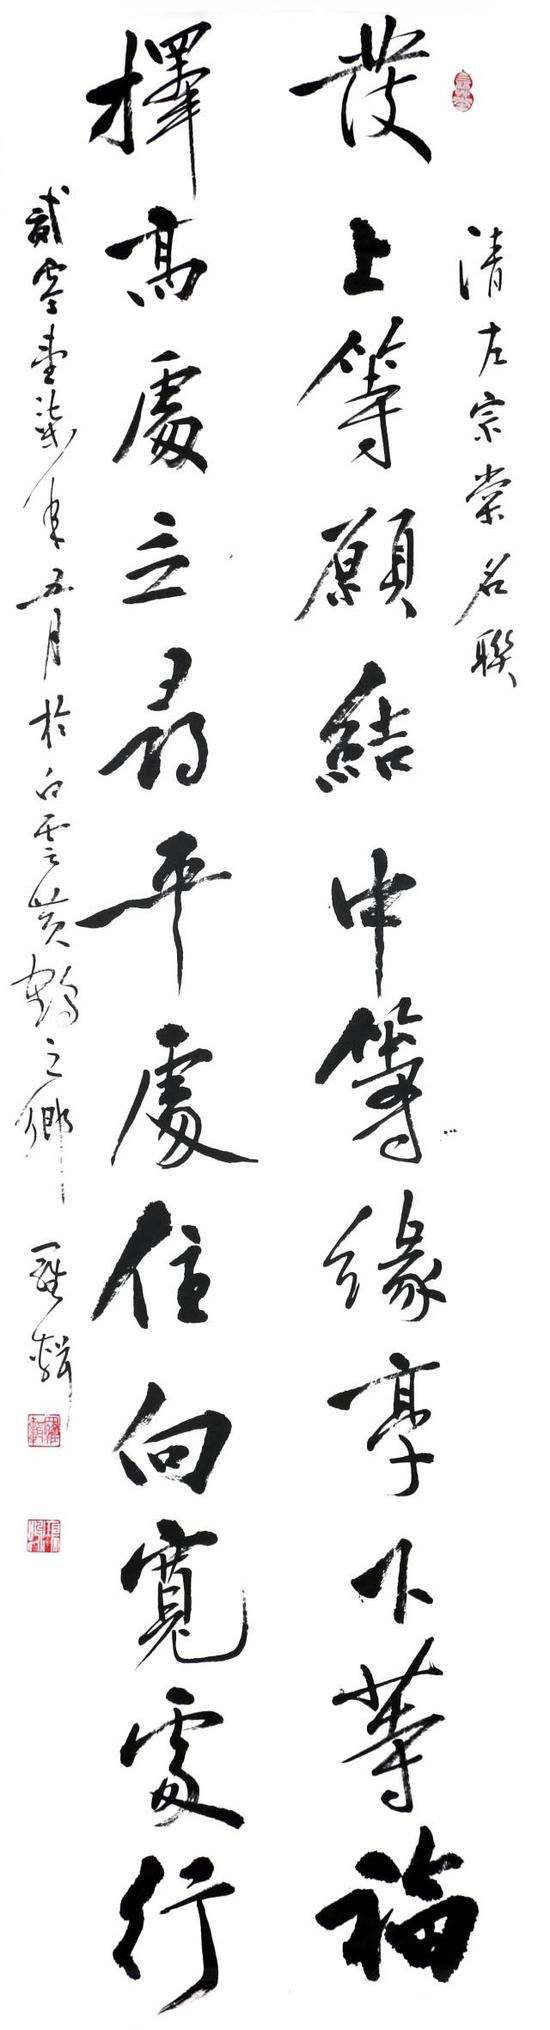 清左宗棠名聯
發上等願結中等緣享下等福
擇高處立尋平處住向寬處行
貳零壹柒年五月於白雲黃鶴之鄉 羅輯